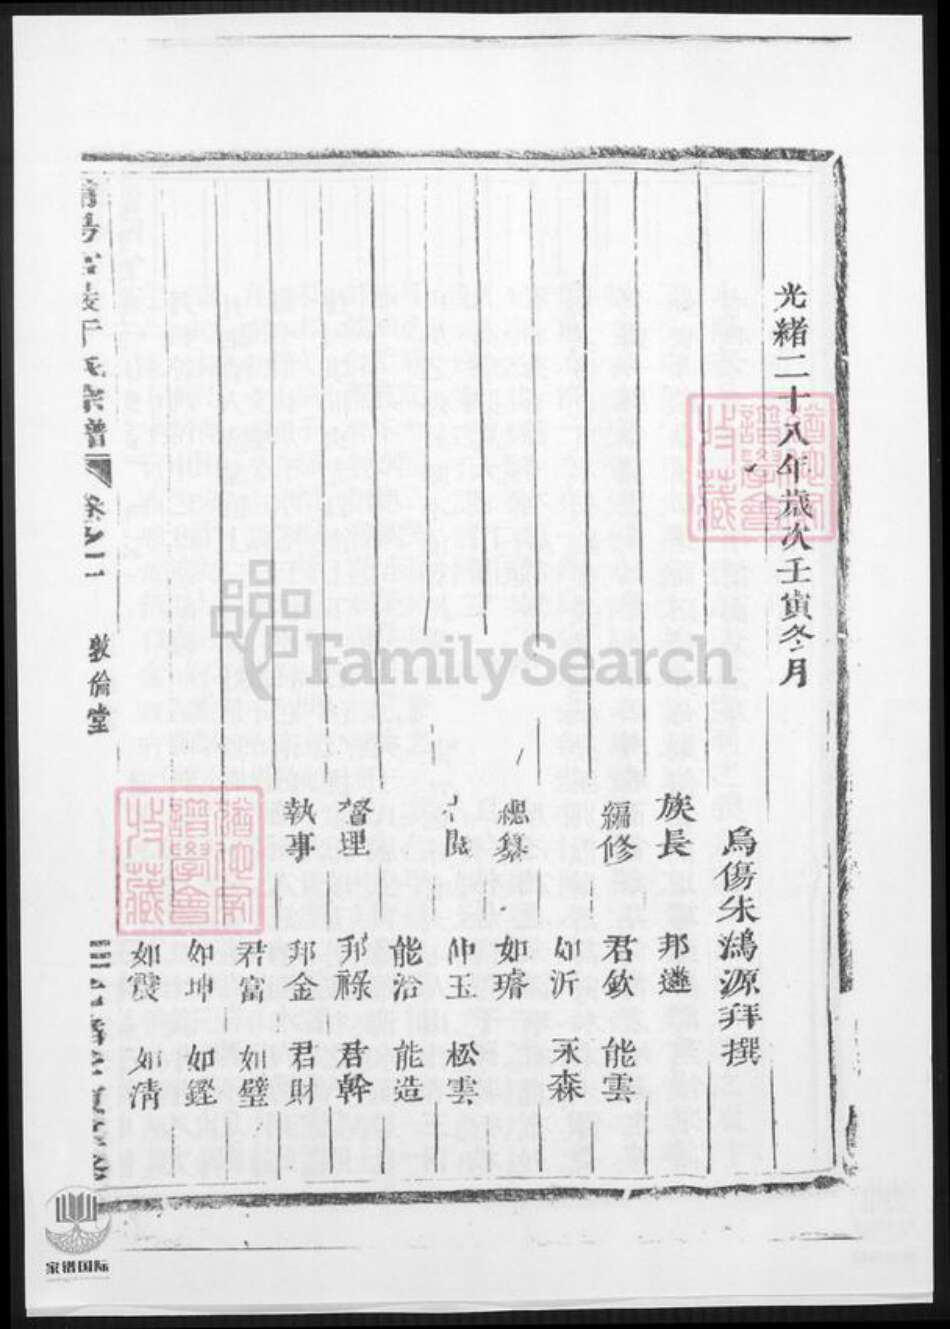 光緒二十八年歲次壬寅冬月
烏傷朱鴻源拜撰
族長 邦遴
編修 君欽 能雲
如沂 永森
總纂 如璿
閱 仲玉 松雲
能治 能造
督理 邦祿 君幹
執事 邦金 君財
君富 如璧
如坤 如鏗
如震 如淸
氏宗譜 卷之一 敦倫堂
譜學會
收藏
譜學會
收藏
FamilySearch
家谱国际